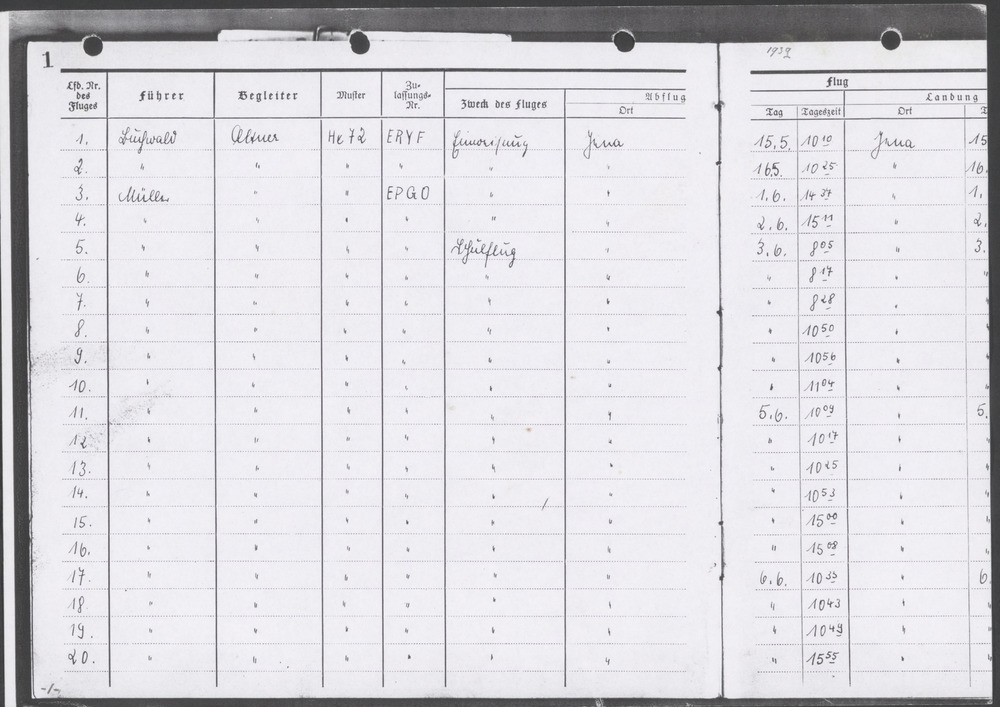 1
1939
Lfd. Nr. des Fluges Führer Begleiter Muster Zu-lassungs-Nr. Zweck des Fluges Abflug Ort Flug Tag Tageszeit Landung Ort
1. Buchwald Altner He 72 ERYF Einweisung Jena 15.5. 10 10 Jena 15
2. " " " " " " 16.5. 10 25 " 16.
3. Müller " " EPGO " " 1.6. 14 37 " 1.
4. " " " " " " 2.6. 15 11 " 2.
5. " " " " Schulflug " 3.6. 8 05 " 3.
6. " " " " " " " 8 17 " "
7. " " " " " " " 8 28 " "
8. " " " " " " " 10 50 " "
9. " " " " " " " 10 56 " "
10. " " " " " " " 11 04 " "
11. " " " " " " 5.6. 10 09 " 5.
12 " " " " " " " 10 17 " "
13. " " " " " " " 10 25 " "
14. " " " " " " " 10 53 " "
15. " " " " " " " 15 00 " "
16. " " " " " " " 15 08 " "
17. " " " " " " 6.6. 10 35 " 6.
18. " " " " " " " 10 43 " "
19. " " " " " " " 10 49 " "
20. " " " " " " " 15 55 " "
-1-